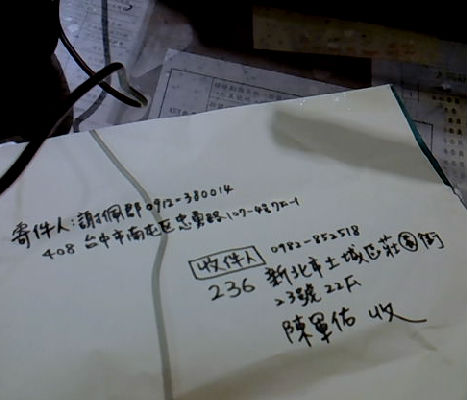 寄件人:謝佩郡 0912-380014
408 台中市南屯區忠勇路107-4號
收件人 0982-852518
236 新北市土城區莊園街
23號22F
陳軍佑 收